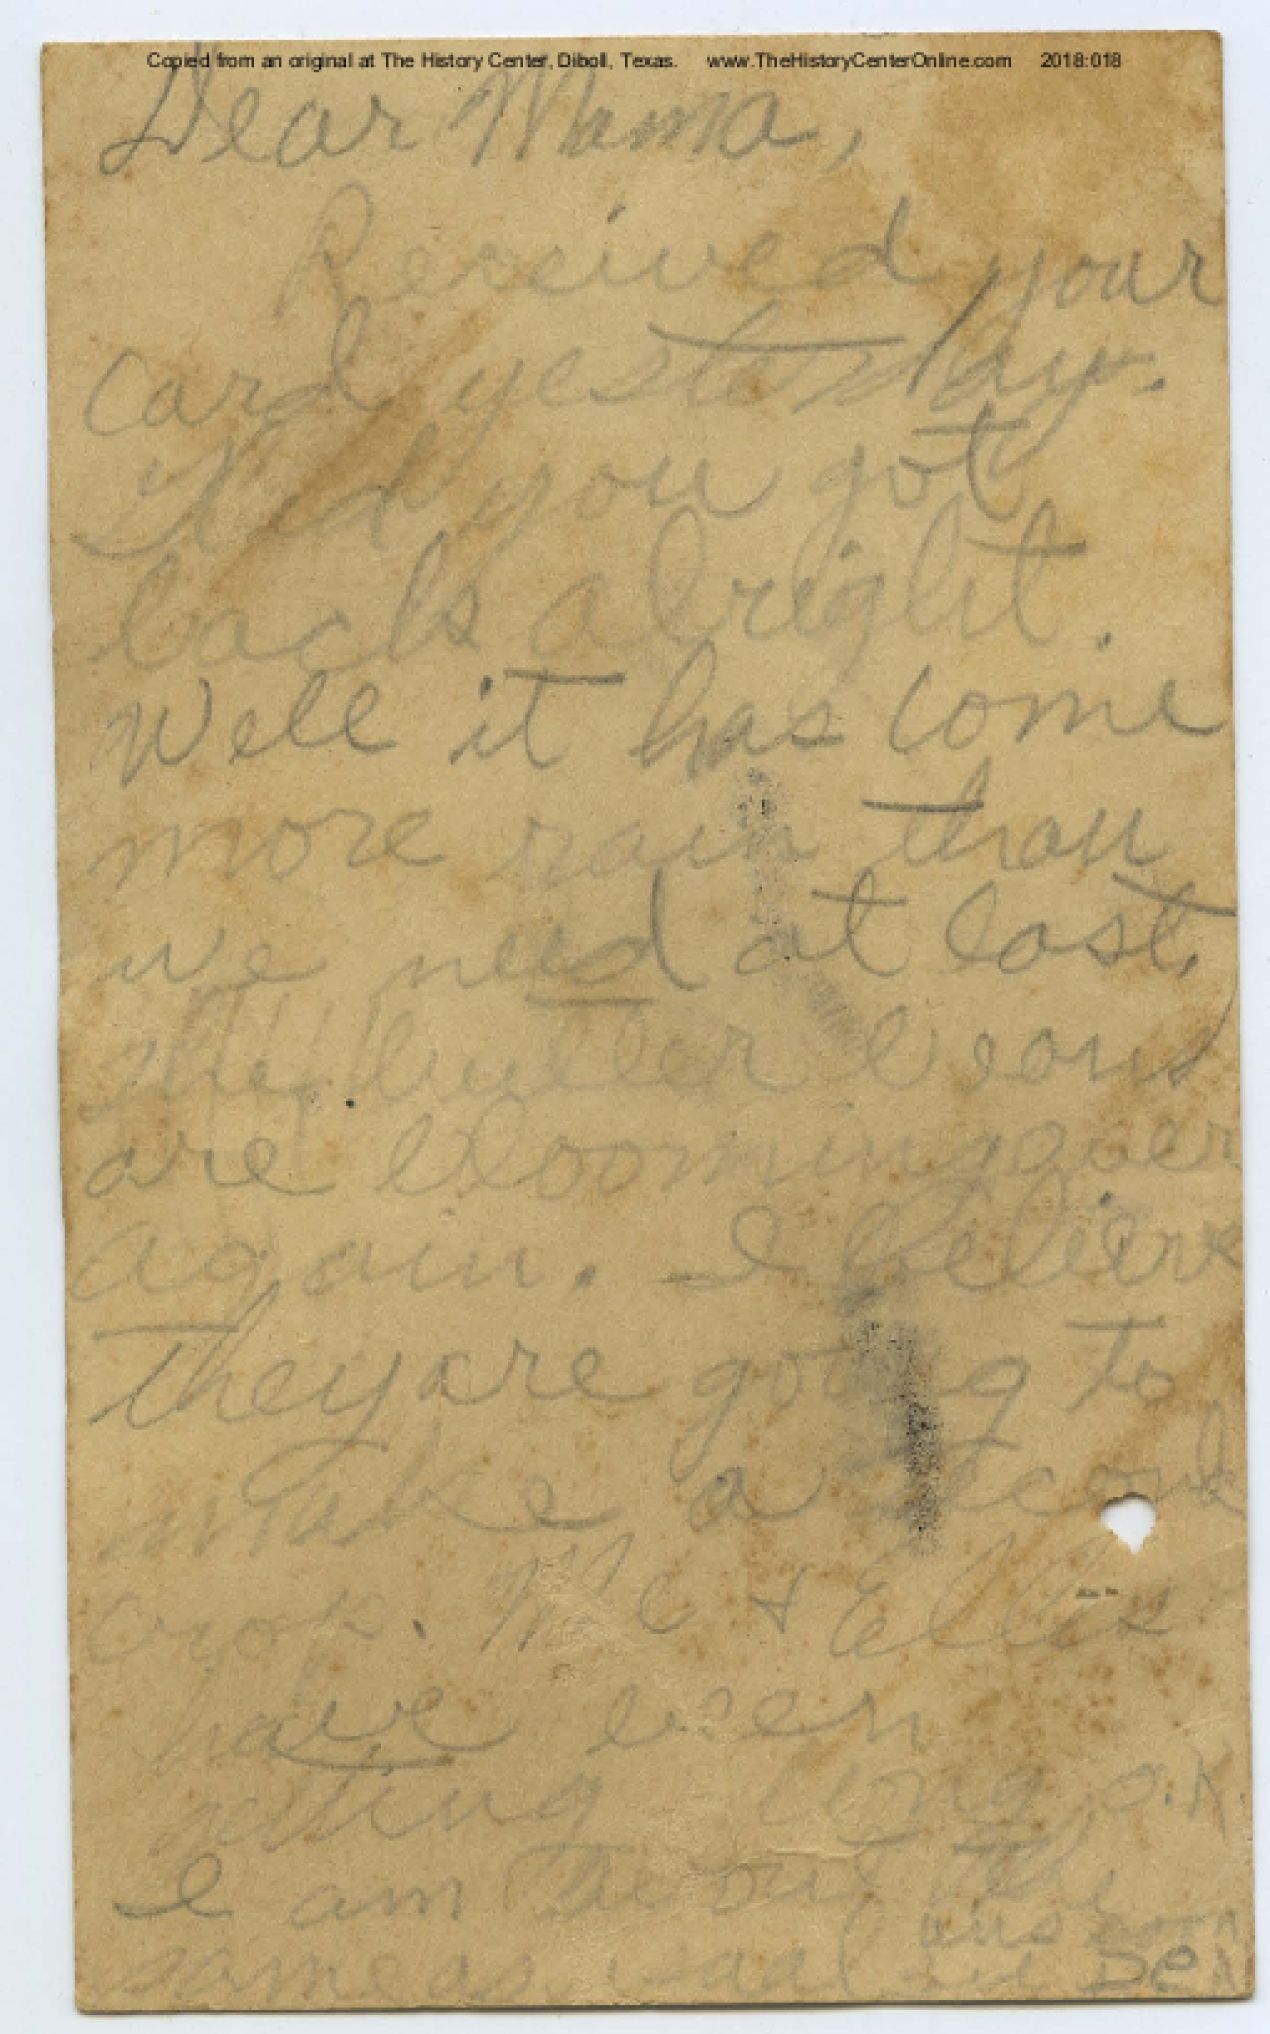 Copied from an original at The History Center, Diboll, Texas. www.TheHistoryCenterOnline.com 2018:018
Dear Mama,
Received your
card yesterday.
you got
back alright.
Well it has come
more rain than
we need at last.
The butter beans
are blooming over
again. I believe
they are going to
make a second
crop. & Ellis
have been
long O.K.
I am about the
same as usual